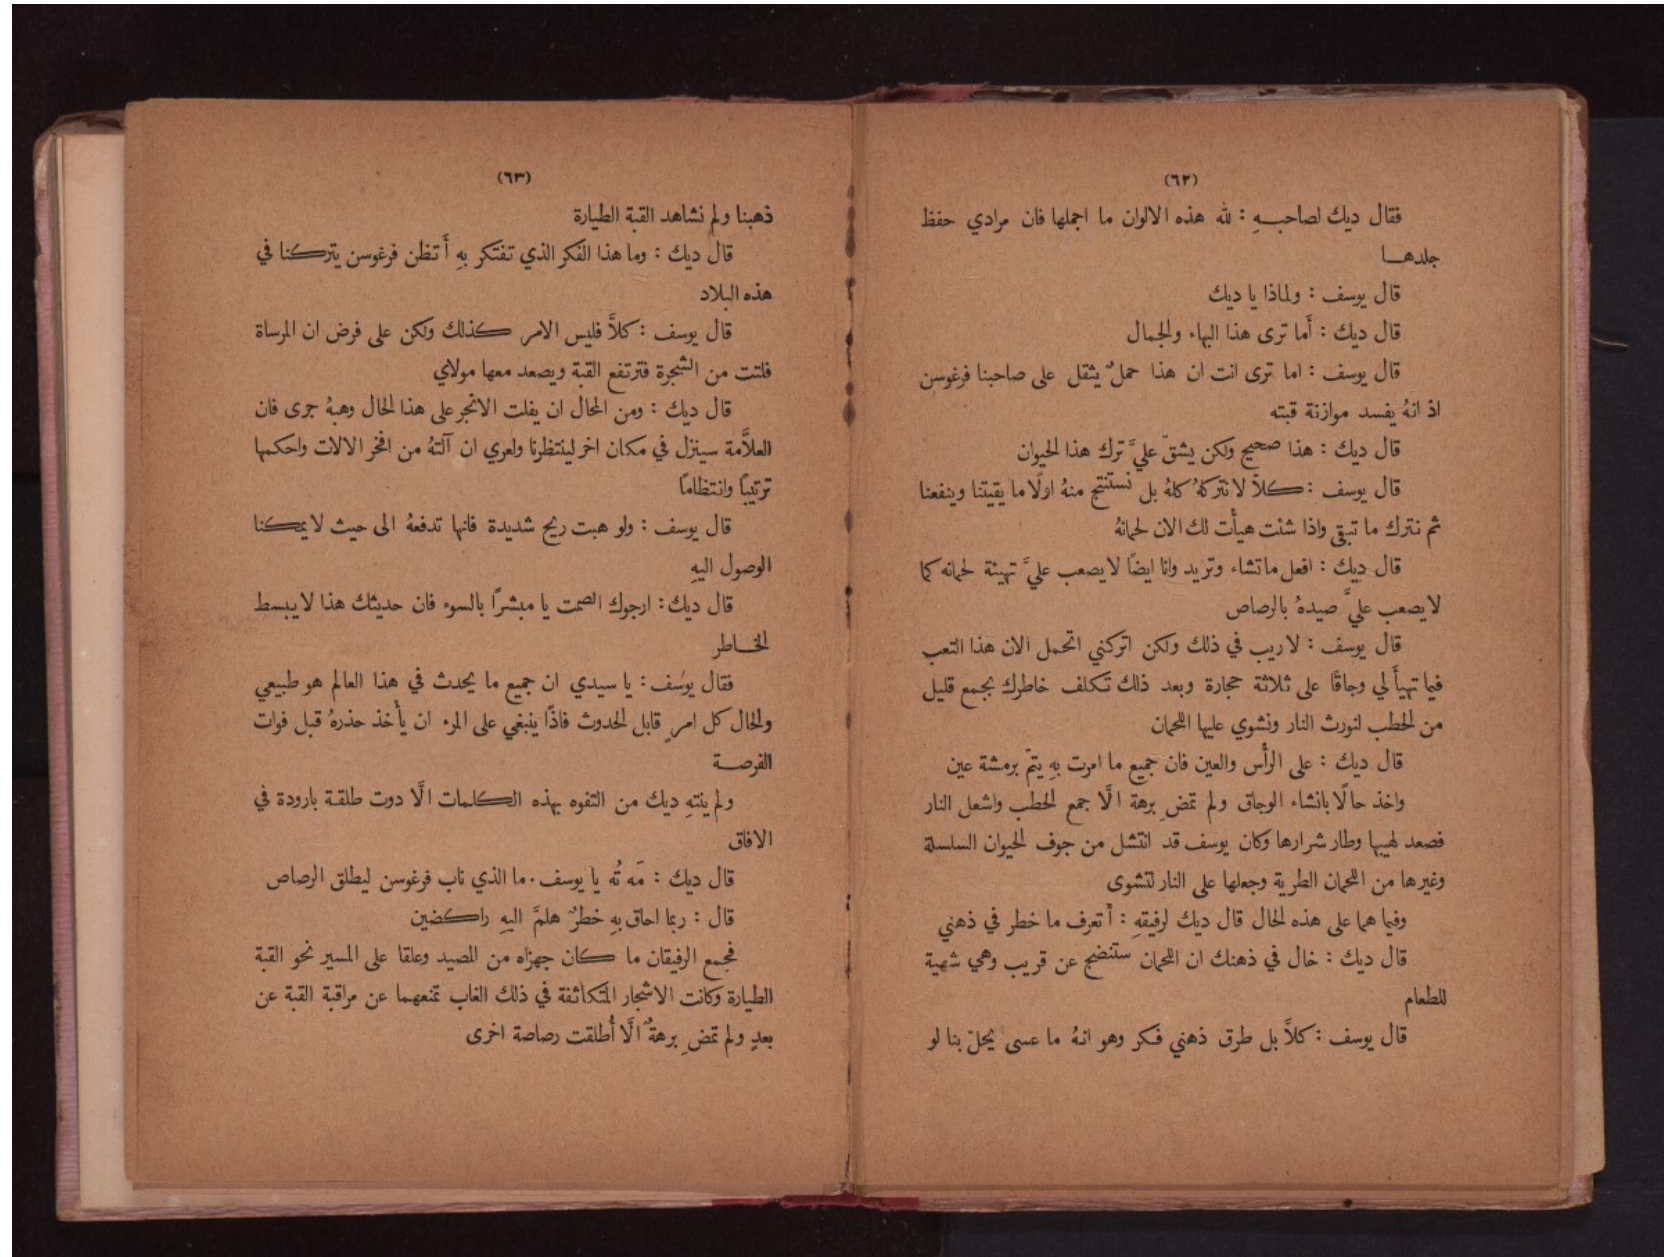 (٦٢)
فقال ديك لصاحبـهِ : لله هذه الالوان ما اجملها فان مرادي حفظ
جلدهـا
قال يوسف : ولماذا يا ديك
قال ديك : أَما ترى هذا البهاء والجمال
قال يوسف : اما ترى انت ان هذا حملٌ يثقل على صاحبنا فرغوسن
اذ انهُ يفسد موازنة قبته
قال ديك : هذا صحيح ولكن يشقّ عليَّ ترك هذا الحيوان
قال يوسف : كلاَّ لا نتركهُ كلهُ بل نستنتج منهُ اولًا ما يقيتنا وينفعنا
ثم نترك ما تبقى واذا شئت هيأت لك الان لحمانهُ
قال ديك : افعل ما تشاء وتريد وانا ايضًا لا يصعب عليَّ تهيئة لحمانه كما
لا يصعب عليَّ صيدهُ بالرصاص
قال يوسف : لا ريب في ذلك ولكن اتركني اتحمل الان هذا التعب
فيما تهيأ لي وجاقًا على ثلاثة حجارة وبعد ذلك تكلف خاطرك بجمع قليل
من الحطب لنورث النار ونشوي عليها اللحمان
قال ديك : على الرأس والعين فان جميع ما امرت بهِ يتمّ برمشة عين
واخذ حالًا بانشاء الوجاق ولم تمضِ برهة الَّا جمع الحطب واشعل النار
فصعد لهيبها وطار شرارها وكان يوسف قد انتشل من جوف الحيوان السلسلة
وغيرها من اللحمان الطرية وجعلها على النار لتشوى
وفيما هما على هذه الحال قال ديك لرفيقهِ : أَتعرف ما خطر في ذهني
قال ديك : خال في ذهنك ان اللحمان ستنضج عن قريب وهي شهية
للطعام
قال يوسف : كلاَّ بل طرق ذهني فكر وهو انهُ ما عسى يحلّ بنا لو
(٦٣)
ذهبنا ولم نشاهد القبة الطيارة
قال ديك : وما هذا الفكر الذي تفتكر بهِ أَتظن فرغوسن يتركنا في
هذه البلاد
قال يوسف : كلاَّ فليس الامر كذلك ولكن على فرض ان المرساة
فلتت من الشجرة فترتفع القبة ويصعد معها مولاي
قال ديك : ومن المحال ان يفلت الانجر على هذا الحال وهبهُ جرى فان
العلاَّمة سينزل في مكان اخر لينتظرنا ولعري ان آلتهُ من افخر الالات واحكمها
ترتيبًا وانتظامًا
قال يوسف : ولو هبت ريح شديدة فانها تدفعهُ الى حيث لا يمكنا
الوصول اليهِ
قال ديك : ارجوك الصمت يا مبشرًا بالسوء فان حديثك هذا لا يبسط
الخـاطر
فقال يوسف : يا سيدي ان جميع ما يحدث في هذا العالم هو طبيعي
والحال كل امرٍ قابل الحدوث فاذًا ينبغي على المرء ان يأخذ حذرهُ قبل فوات
الفرصـة
ولم ينتهِ ديك من التفوه بهذه الكلمات الَّا دوت طلقة بارودة في
الافاق
قال ديك : مَه تُه يا يوسف . ما الذي ناب فرغوسن ليطلق الرصاص
قال : ربما احاق بهِ خطرٌ هلمَّ اليهِ راكضين
فجمع الرفيقان ما كان جهزاه من المصيد وعلقا على المسير نحو القبة
الطيارة وكانت الاشجار المتكاثفة في ذلك الغاب تمنعهما عن مراقبة القبة عن
بعدٍ ولم تمضِ برهةٌ الَّا أُطلقت رصاصة اخرى